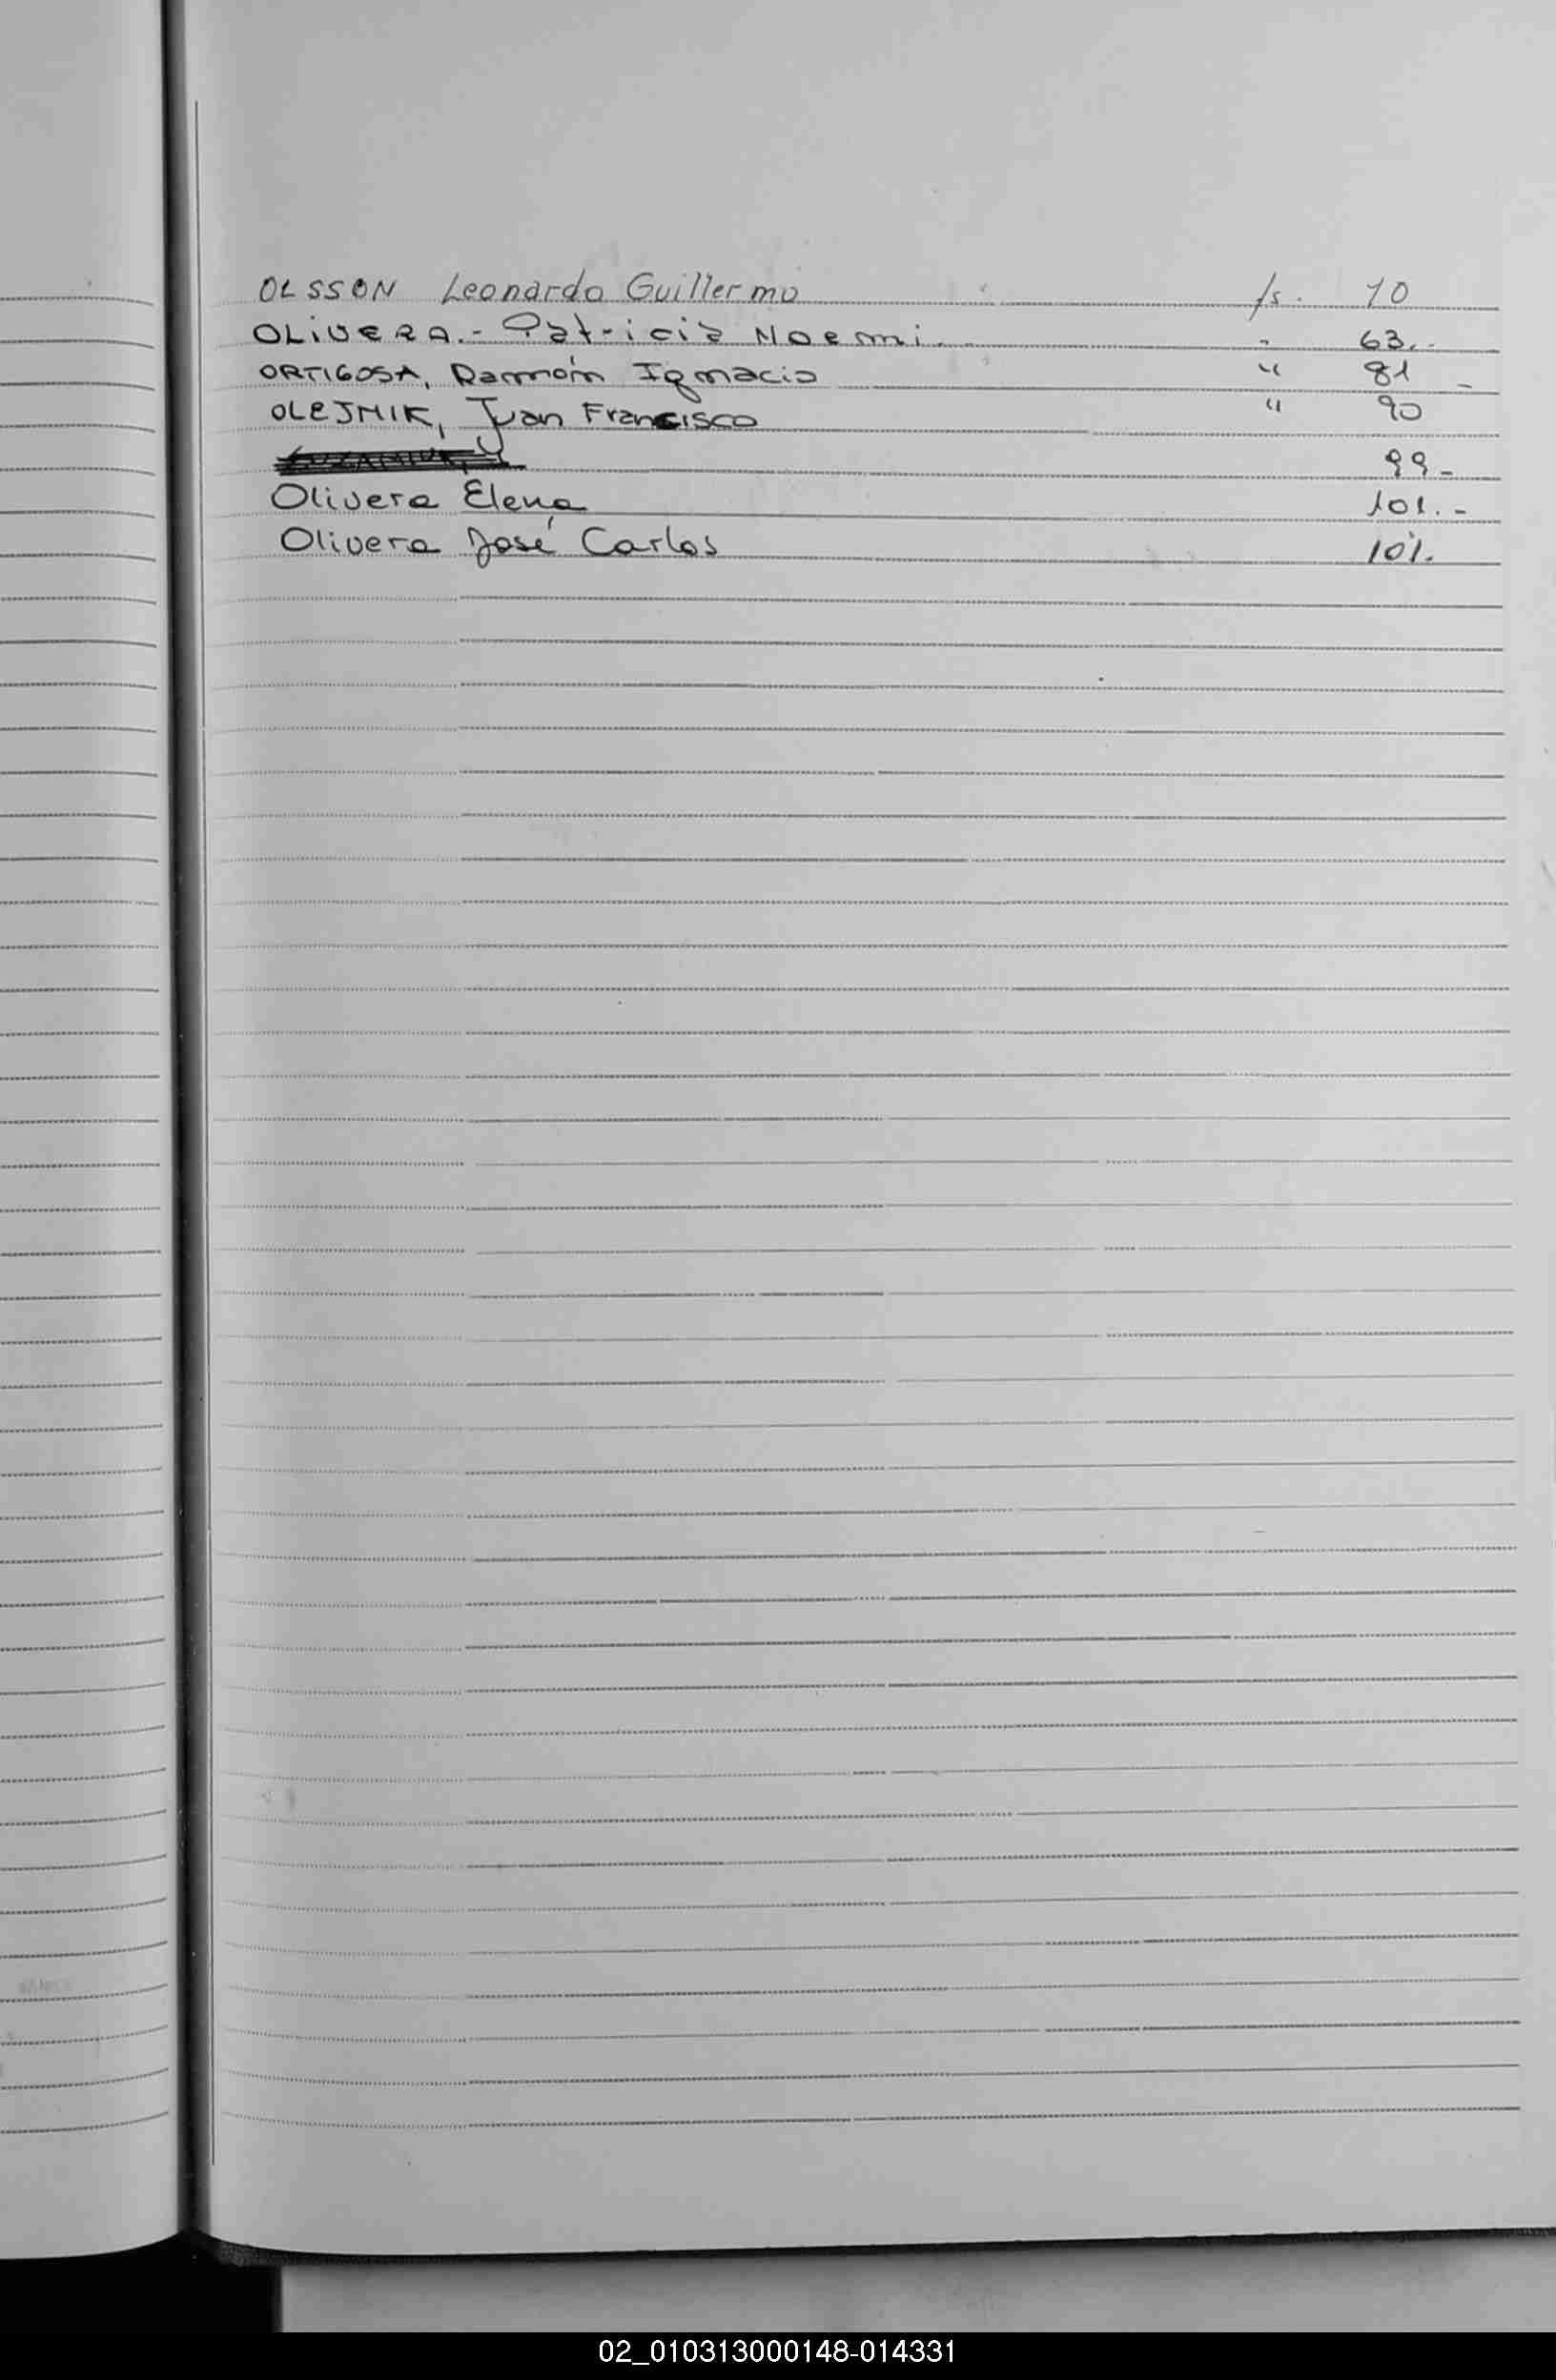 OLSSON Leonardo Guillermo fs. 10
OLIVERA.- Patricia Noemi. " 63.-
ORTIGOSA, Ramón Ignacio " 81 -
OLEJNIK, Juan Francisco " 90
99-
Olivera Elena 101.-
Olivera José Carlos 101.
02_010313000148-014331